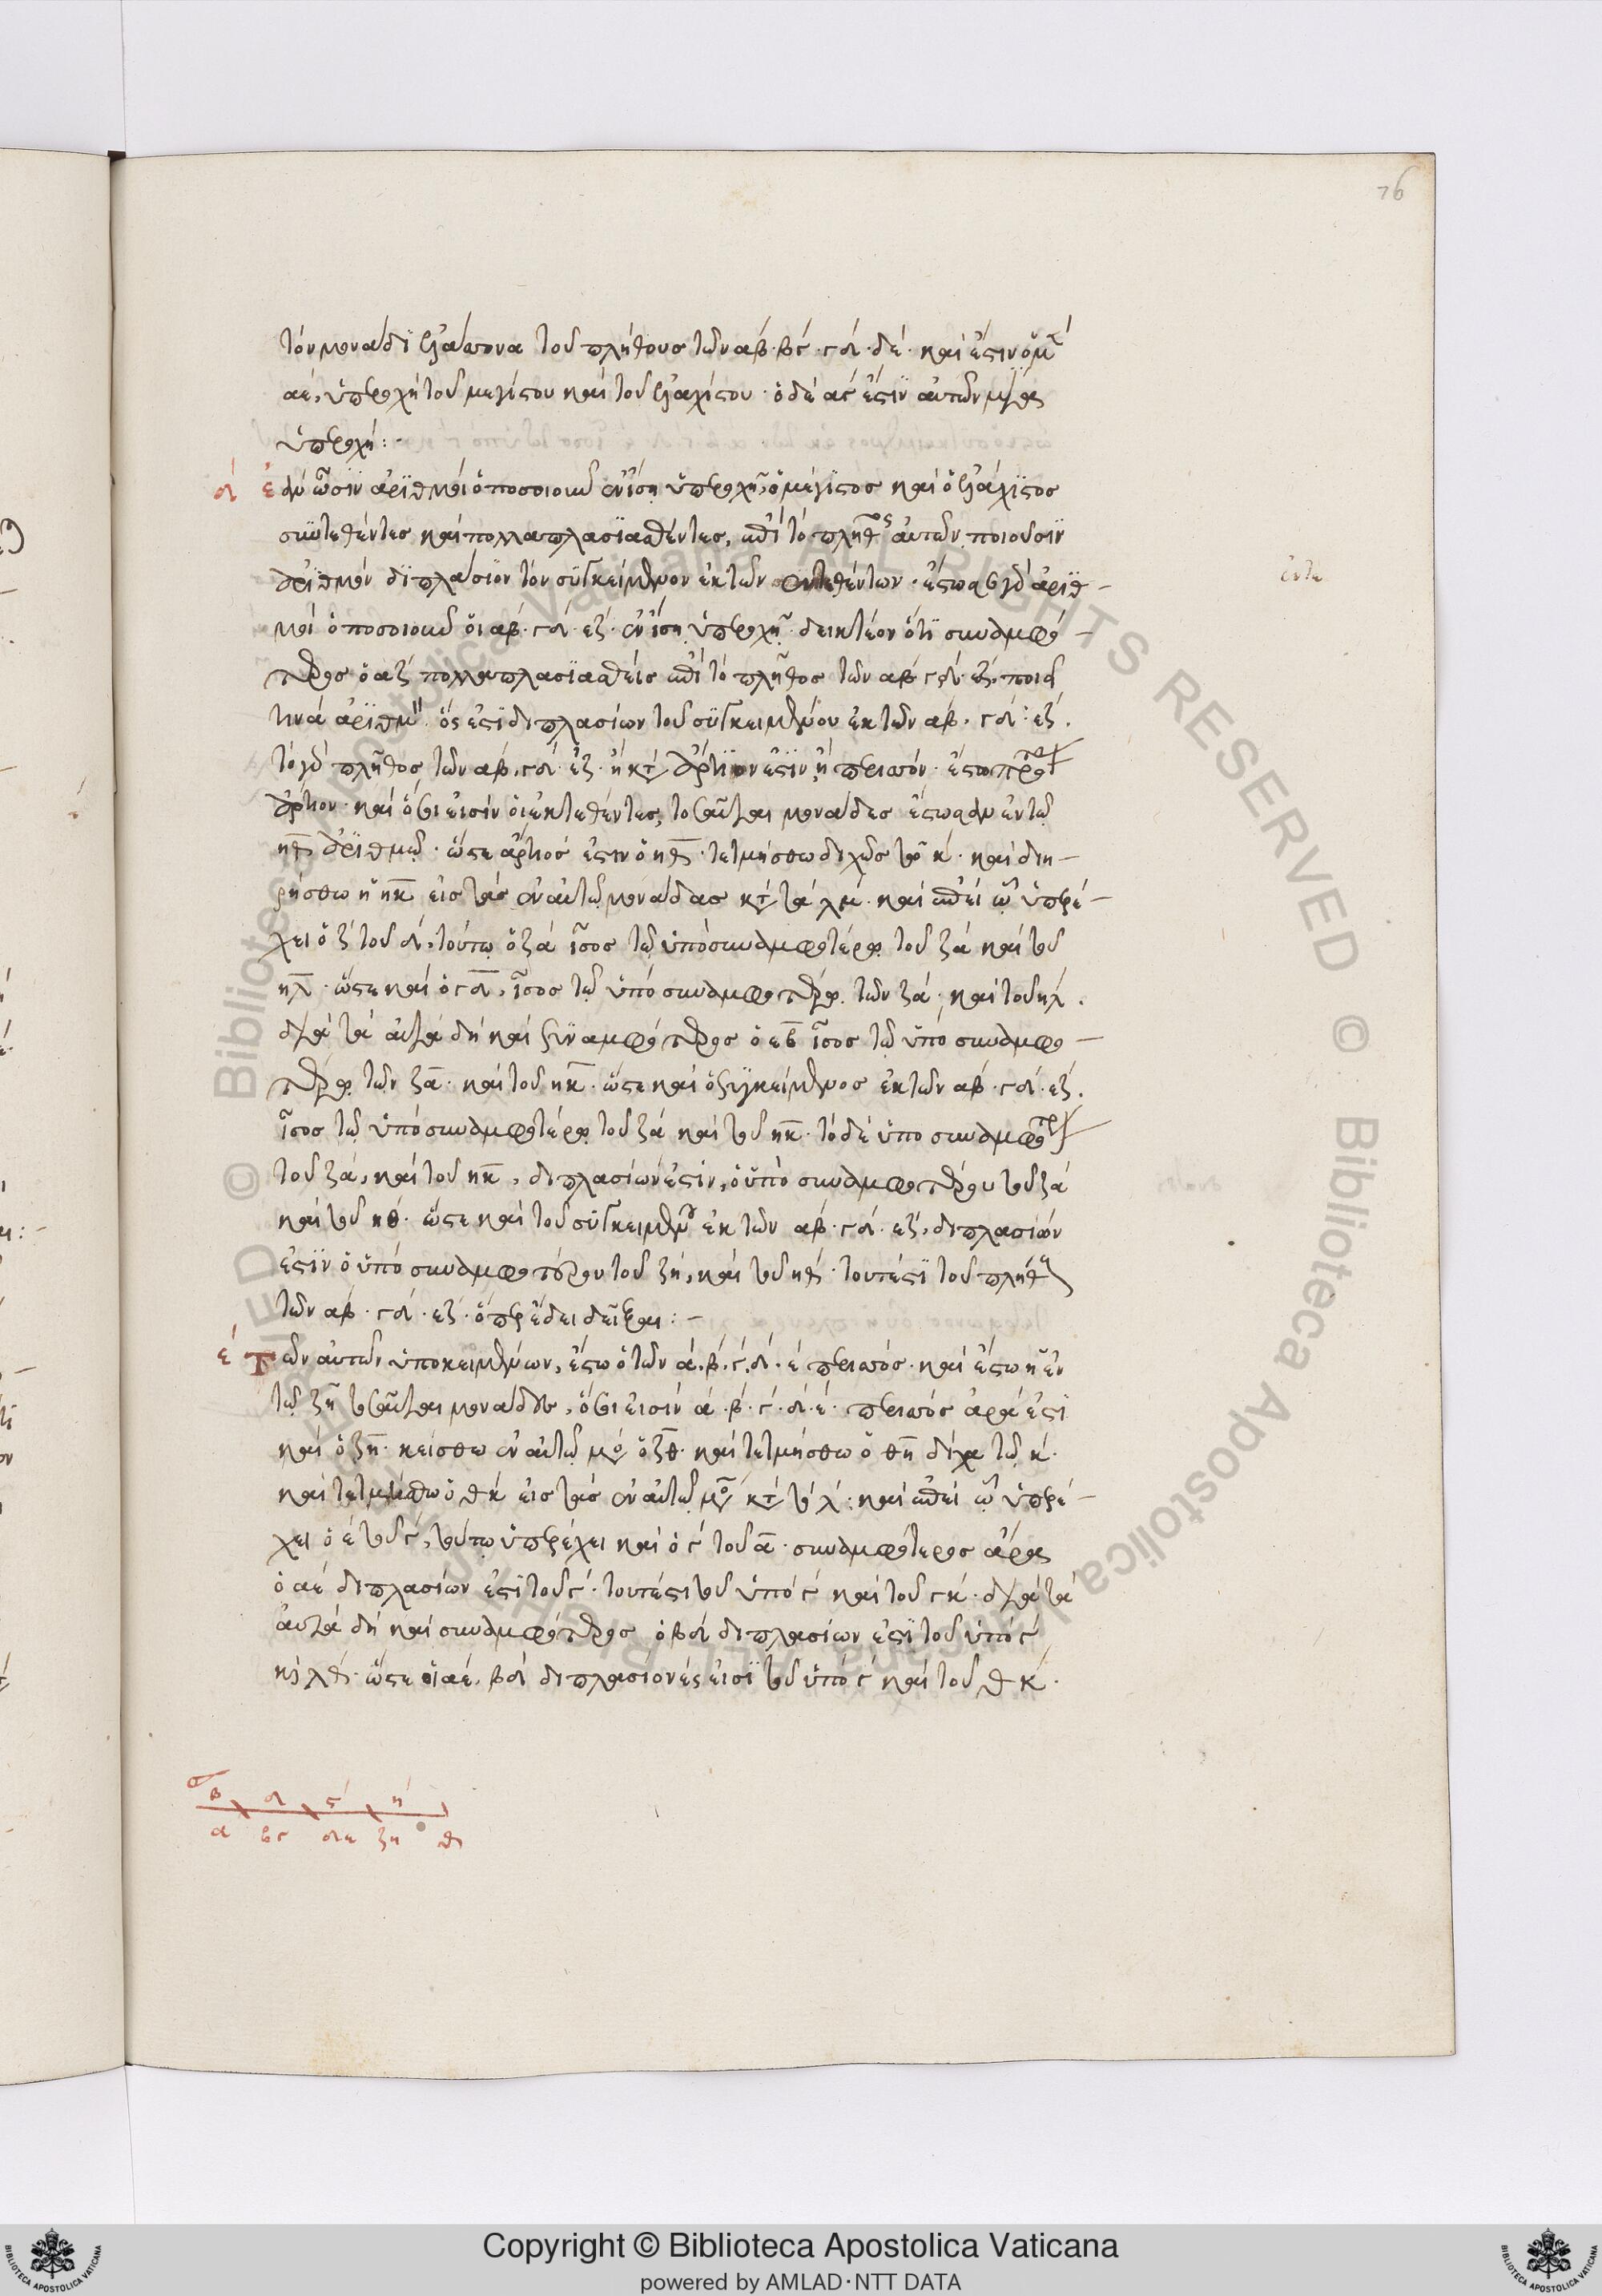 76
τὸν μονάδι ἐλάττονα τοῦ πλήθους τῶν αβ · βγ · γδ · δε · καὶ ἔστιν ὁ μ
αε, ὑπεροχὴ τοῦ μεγίστου καὶ τοῦ ἐλαχίστου · ὁ δὲ αγ ἐστὶν αὐτῶν
ὑπεροχή: -
δ ἐὰν ὦσιν ἀριθμοὶ ὁποσοιοῦν ἐν ἴσῃ ὑπεροχῇ, ὁ μέγιστος καὶ ὁ ἐλάχιστος
συντεθέντες καὶ πολλαπλασιασθέντες, ἐπὶ τὸ πλῆθος αὐτῶν ποιοῦσιν
ἀριθμὸν διπλάσιον τὸν συγκείμενον ἐκ τῶν συντεθέντων · ἔστωσαν γὰρ ἀριθ-
μοὶ ὁποσοιοῦν οἱ αβ · γδ · εζ · ἐν ἴσῃ ὑπεροχῇ · δεικτέον ὅτι συναμφό-
τερος ὁ αζ πολλαπλασιασθεὶς ἐπὶ τὸ πλῆθος τῶν αβ γδ εζ, ποιεῖ
τινὰ ἀριθμὸν ὅς ἐστι διπλασίων τοῦ συγκειμένου ἐκ τῶν αβ, γδ · εζ.
τὸ γὰρ πλῆθος τῶν αβ, γδ εζ · ἤτοι ἄρτιον ἐστὶν ἢ περισσόν · ἔστω πρότερον
ἄρτιον · καὶ ὅσοι εἰσὶν οἱ ἐκτεθέντες, τοσαῦται μονάδες ἔστωσαν ἐν τῷ
ηθ ἀριθμῷ · ὥστε ἄρτιος ἐστιν ὁ ηθ · τετμήσθω δίχως τὸ κ · καὶ διῃ-
ρήσθω ὁ ηκ εἰς τὰς ἐν αὐτῷ μονάδας κατὰ τὰ λμ · καὶ ἐπεὶ ᾧ ὑπερέ-
χει ὁ ζ τοῦ δ, τούτῳ ὁ ζα ἴσος τῷ ὑπὸ συναμφοτέρου τοῦ ζα καὶ τοῦ
ηλ · ὥστε καὶ ὁ γδ, ἴσος τῷ ὑπὸ συναμφοτέρου τῶν ζα · καὶ τοῦ ηλ.
διὰ τὰ αὐτὰ δὴ καὶ συναμφότερος ὁ εβ ἴσος τῷ ὑπὸ συναμφο-
τέρου τῶν ζα · καὶ τοῦ ηκ · ὥστε καὶ ὁ συγκείμενος ἐκ τῶν αβ · γδ · εζ.
ἴσος τῷ ὑπὸ συναμφοτέρου τοῦ ζα καὶ τοῦ ηκ · τὸ δὲ ὑπὸ συναμφοτέρου
τοῦ ζα, καὶ τοῦ ηκ, διπλασίων ἐστίν, ὁ ὑπὸ συναμφοτέρου τοῦ ζα
καὶ τοῦ ηθ · ὥστε καὶ τοῦ συγκειμένου ἐκ τῶν αβ · γδ · εζ, διπλασίων
ἐστὶν ὁ ὑπὸ συναμφοτέρου τοῦ ζη, καὶ τοῦ ηθ · τουτέστι τοῦ πλήθους
τῶν αβ · γδ · εζ · ὅπερ ἔδει δεῖξαι: -
ε Τῶν αὐτῶν ὑποκειμένων, ἔστω ὁ τῶν α · β · γ · δ · ε περισσός · καὶ ἔστωσαν ἐν
τῷ ζη τοσαῦται μονάδες, ὅσοι εἰσὶν α · β · γ · δ · ε · περισσὸς ἄρα ἐστὶ
καὶ ὁ ζη · κείσθω ἐν αὐτῷ μο ὁ ζθ · καὶ τετμήσθω ὁ θη δίχα τῷ κ ·
καὶ τετμήσθω ὁ θκ εἰς τὰς ἐν αὐτῷ μο κατὰ τὸ λ · καὶ ἐπεὶ ᾧ ὑπερέ-
χει ὁ ε τοῦ γ, τούτῳ ὑπερέχει καὶ ὁ γ τοῦ α · συναμφότερος ἄρα
ὁ αε διπλασίων ἐστὶ τοῦ γ · τουτέστι τοῦ ὑπὸ γ καὶ τοῦ γκ · διὰ τὰ
αὐτὰ δὴ καὶ συναμφότερος ὁ βδ διπλασίων ἐστὶ τοῦ ὑπὸ γ
καὶ λθ · ὥστε οἱ αε, βδ διπλασίονές εἰσι τοῦ ὑπὸ γ καὶ τοῦ θκ ·
β δ ς η
α βγ δε ζη θ
Copyright © Biblioteca Apostolica Vaticana
powered by AMLAD·NTT DATA